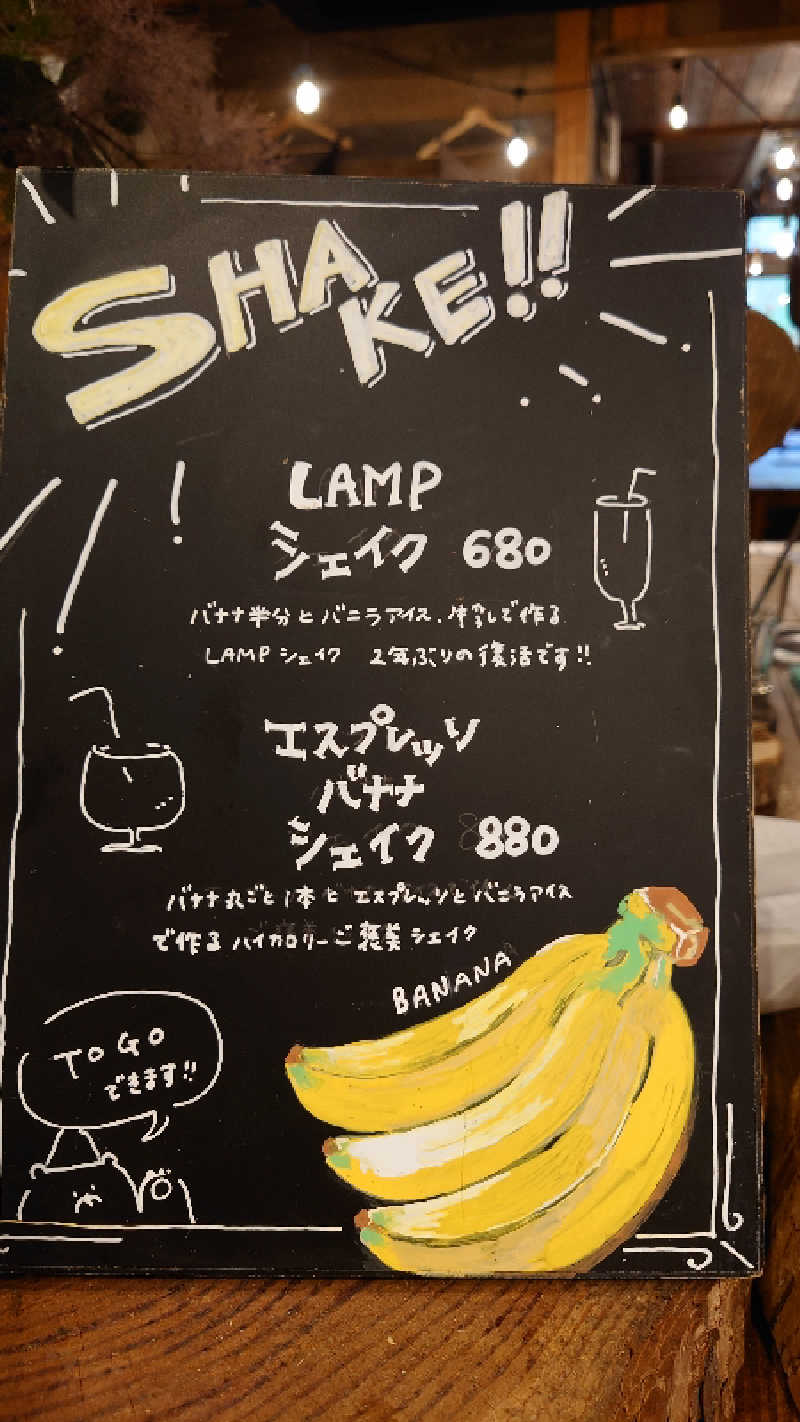 SHAKE!!
LAMP
シェイク 680
バナナ半分とバニラアイス、牛乳で作る
LAMPシェイク 2年ぶりの復活です!!
エスプレッソ
バナナ
シェイク 880
バナナ丸ごと1本とエスプレッソとバニラアイス
で作るハイカロリーご褒美シェイク
BANANA
TO GO
できます!!